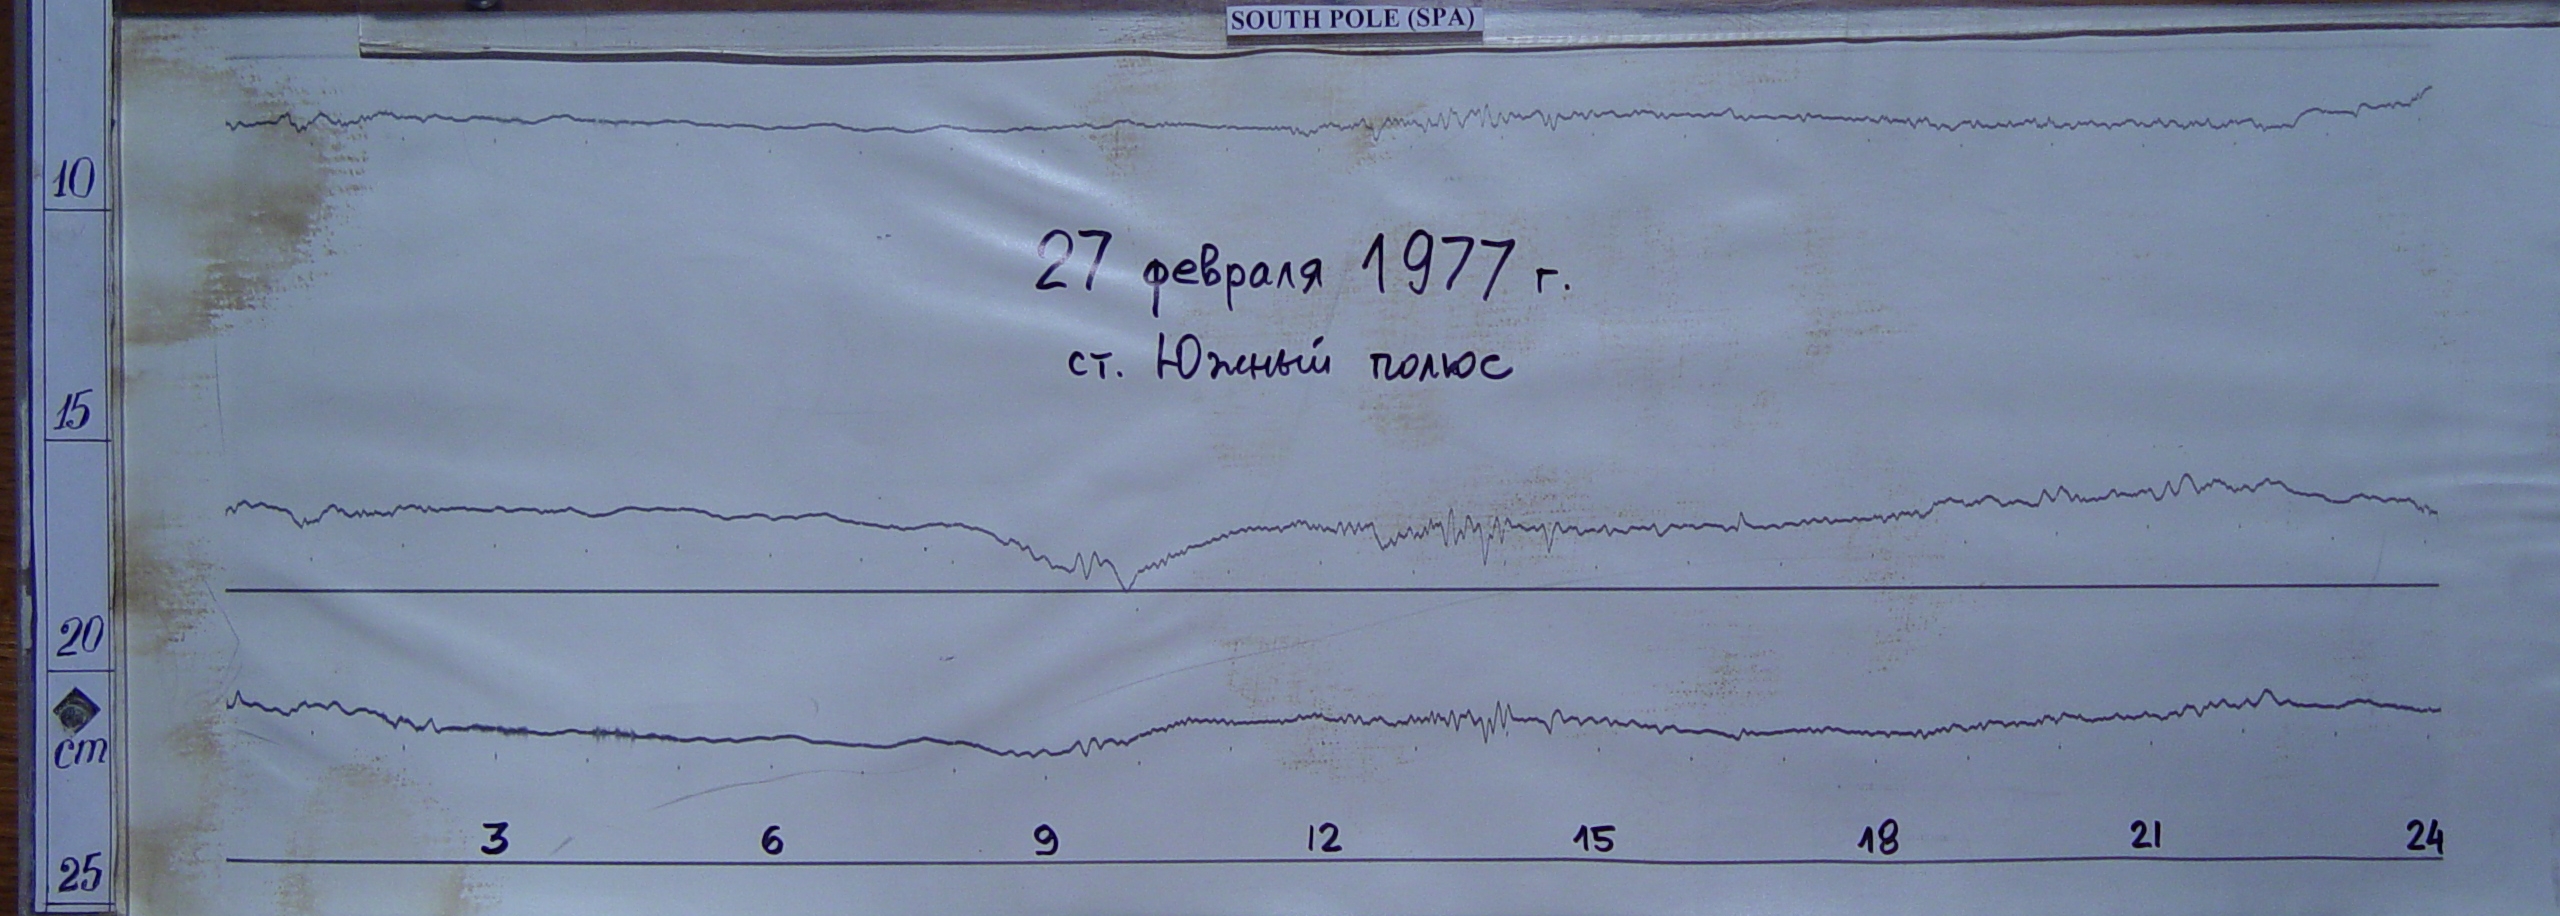 SOUTH POLE (SPA)
10
27 февраля 1977 г.
ст. Южный полюс
15
20
cm
3 6 9 12 15 18 21 24
25